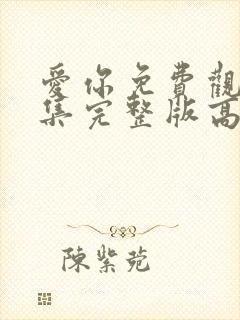 愛你免費觀
集完整版高
陳紫菀